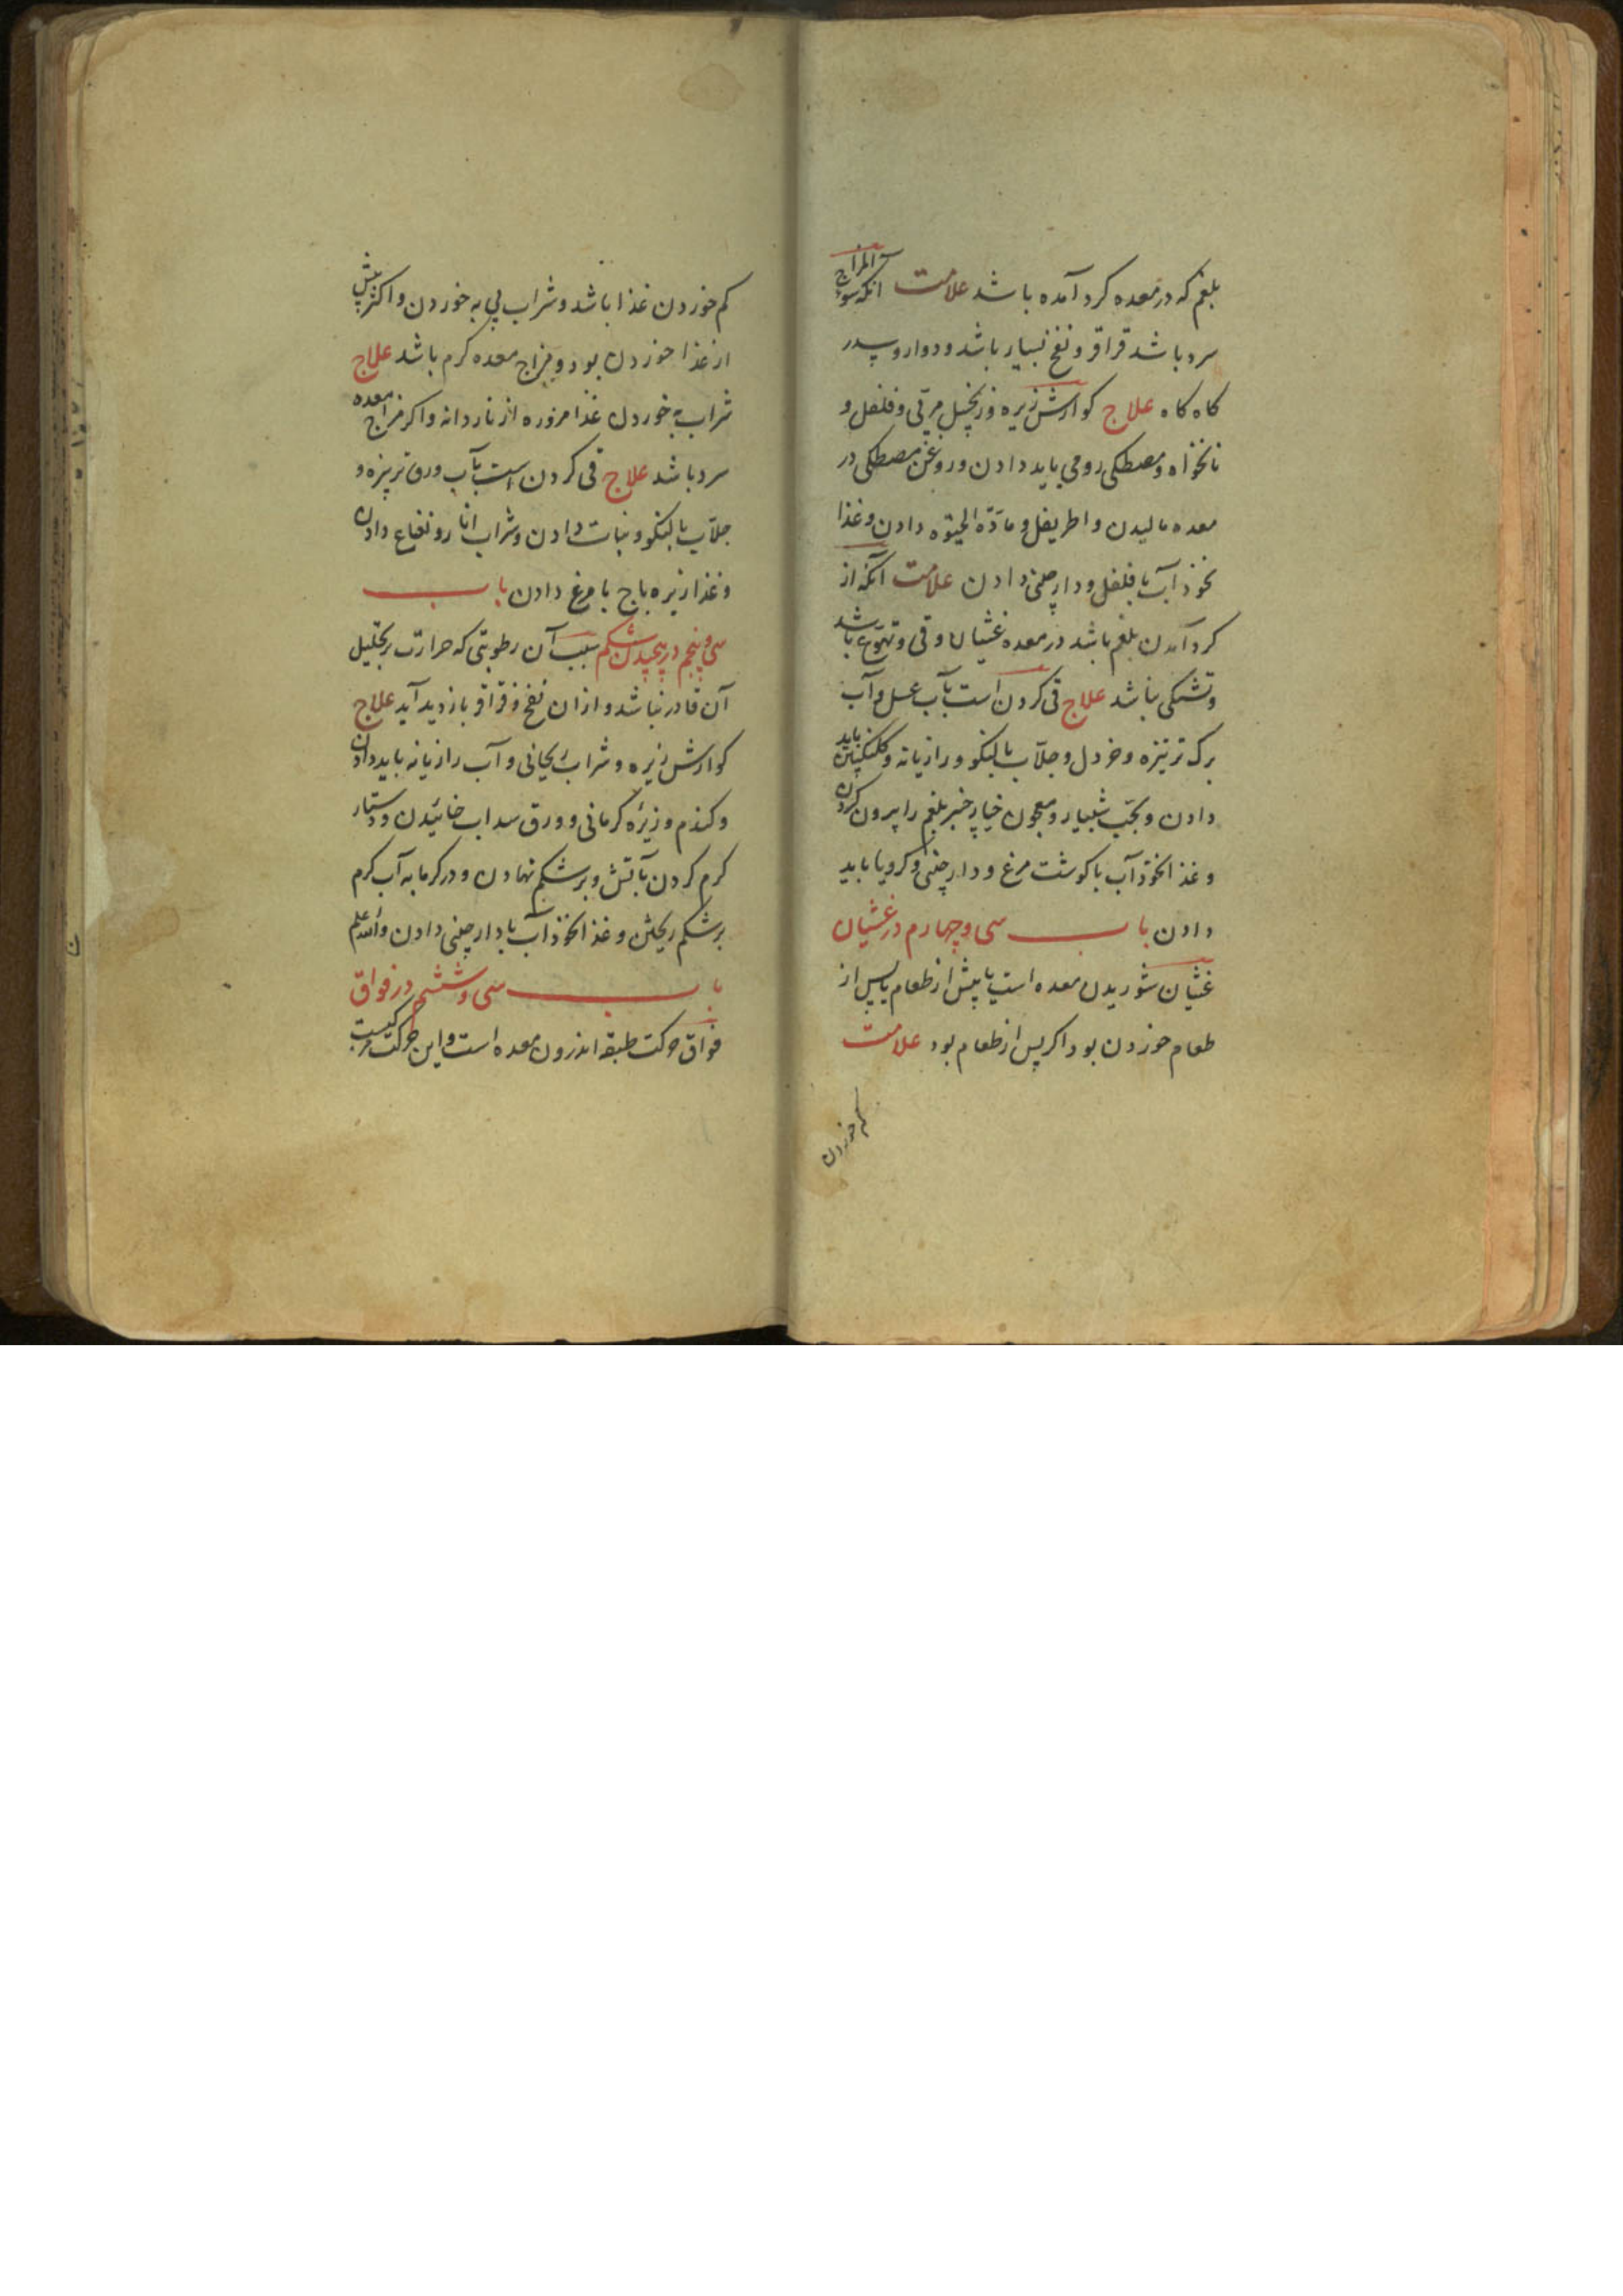 بلغم که در معده کرد آمده باشد علامت آنکه سوء المزاج
سرد باشد قراقر و نفخ بسیار باشد و دوار و سدر
کاه کاه علاج کوارش زیره و زنجبیل مربّی و فلفل و
نانخواه و مصطکی رومی باید دادن و روغن مصطکی در
معده مالیدن و اطریفل و مادّة الحیوة دادن و غذا
نخوذ آب با فلفل و دارچینی دادن علامت آنکه از
کرد آمدن بلغم باشد در معده غشیان و قی و تهوّع باشد
و تشنکی نباشد علاج قی کردن است بآب عسل و آب
برک تربزه و خردل و جلّاب بالنکو و رازیانه و کلنکبین باید
دادن و بحبّ شبیار و معجون خیارچنبر بلغم را بیرون کردن
و غذا نخوذ آب با کوشت مرغ و دارچینی و کرویا باید
دادن باب سی و چهارم در غشیان
غشیان شوریدن معده است یا پیش از طعام یا پس از
طعام خوردن بود اکر پس از طعام بود علامت
کم خوردن
کم خوردن غذا باشد و شراب پی به خوردن و اکثر پیش
از غذا خوردن بود و مزاج معده کرم باشد علاج
شراب به خوردن غذا مزوره از ناردانه و اکر مزاج معده
سرد باشد علاج قی کردن است بآب ورق تربزه و
جلّاب بالنکو و نبات دادن و شراب انار و نعناع دادن
و غذا زیره باج با مرغ دادن باب
سی و پنجم در پیچیدن شکم سبب آن رطوبتی که حرارت بر تحلیل
آن قادر نباشد و از ان نفخ و قراقر بازدید آید علاج
کوارش زیره و شراب ریحانی و آب رازیانه باید دادن
و کندم و زیرۀ کرمانی و ورق سداب خائیدن و دستار
کرم کردن بآتش و بر شکم نهادن و در کرمابه آب کرم
بر شکم ریختن و غذا نخوذ آب با دارچینی دادن والله اعلم
باب سی و ششم در فواق
فواق حرکت طبقه اندرون معده است و این حرکت مرکبست